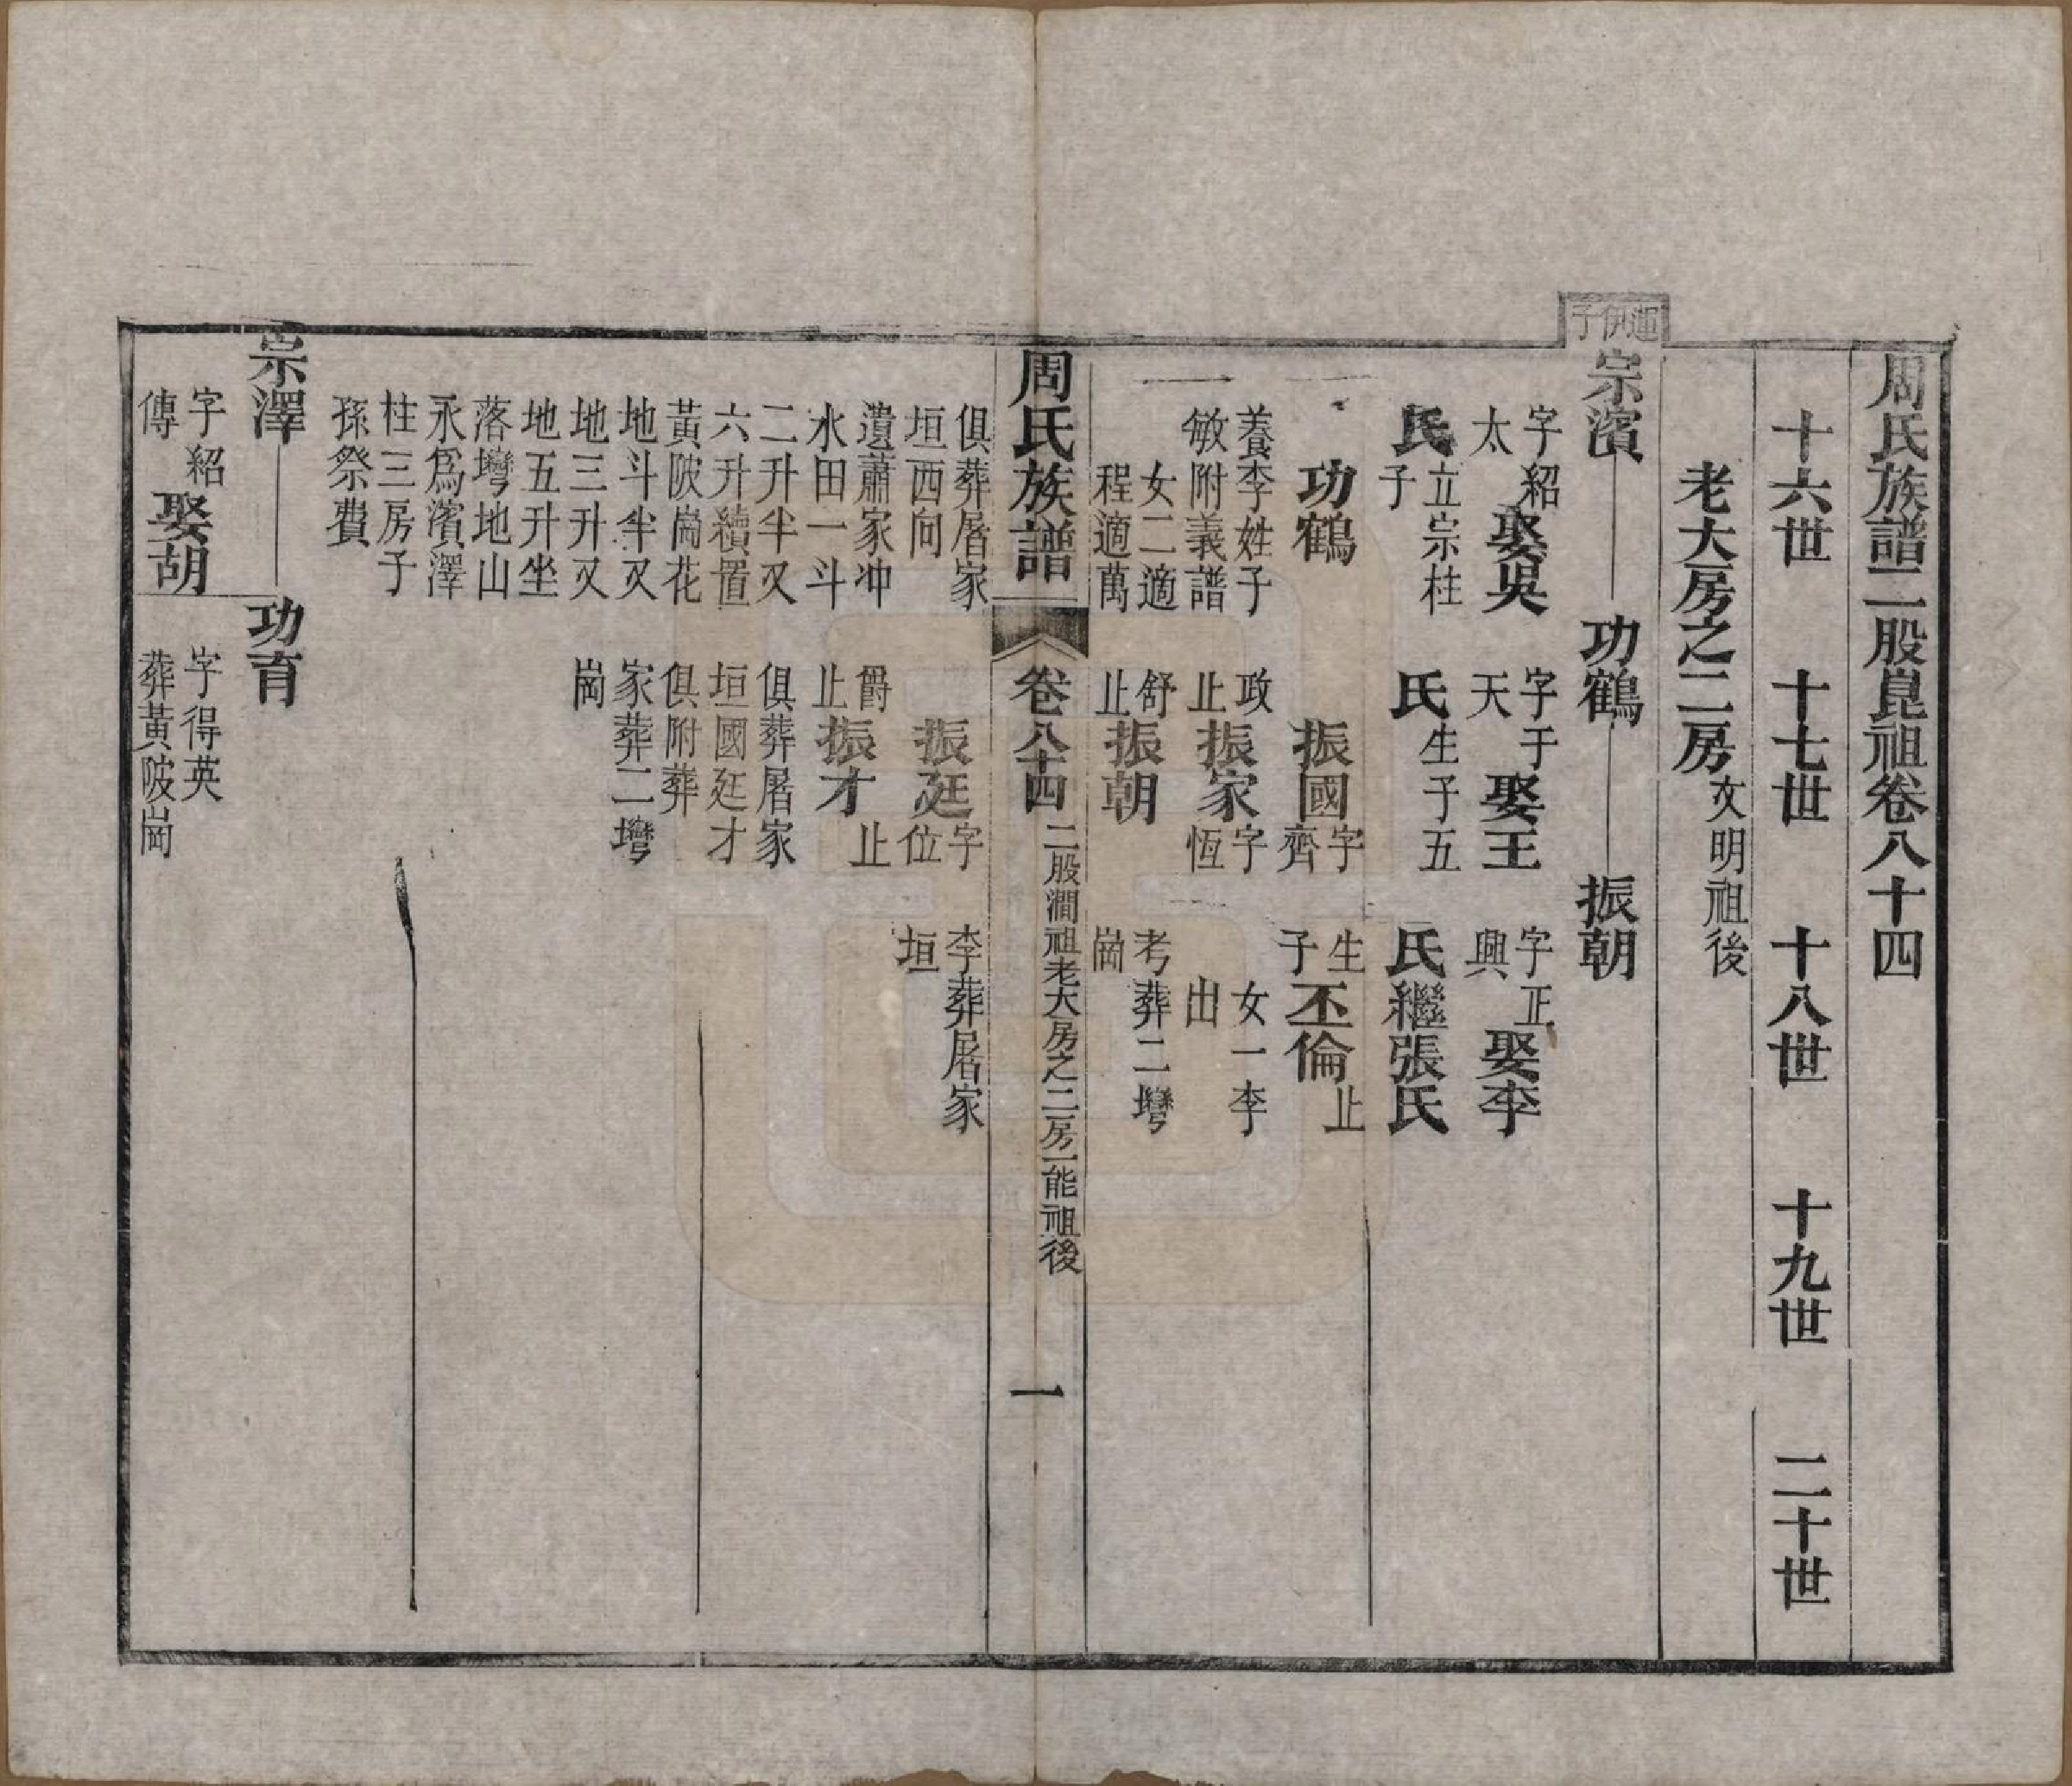 周氏族譜二股崑祖卷八十四
十六世 十七世 十八世 十九世 二十世
老大房之二房文明祖後
伊子
宗濱 功鶴 振朝
字紹太娶吳 字于天娶王 字正興娶李
氏立宗柱子 氏生子五 氏繼張氏
功鶴 振國字齊 生子丕倫止
養李姓子敏附義譜 政止振家字恆 女一李出
女二適程適萬 舒止振朝 考葬二壪崗
周氏族譜 卷八十四 二股澗祖老大房之二房一能祖後 一
俱葬屠家垣西向 振廷字位 李葬屠家垣
遺蕭家冲水田一斗 爵止振才止
二升半又六升續置 俱葬屠家垣國廷才
黃陂崗花地斗半又 俱附葬家葬二壪
地三升又地五升坐 崗
落壪地山永爲濱澤
柱三房子孫祭費
宗澤 功育
字紹傳娶胡 字得英葬黃陂崗